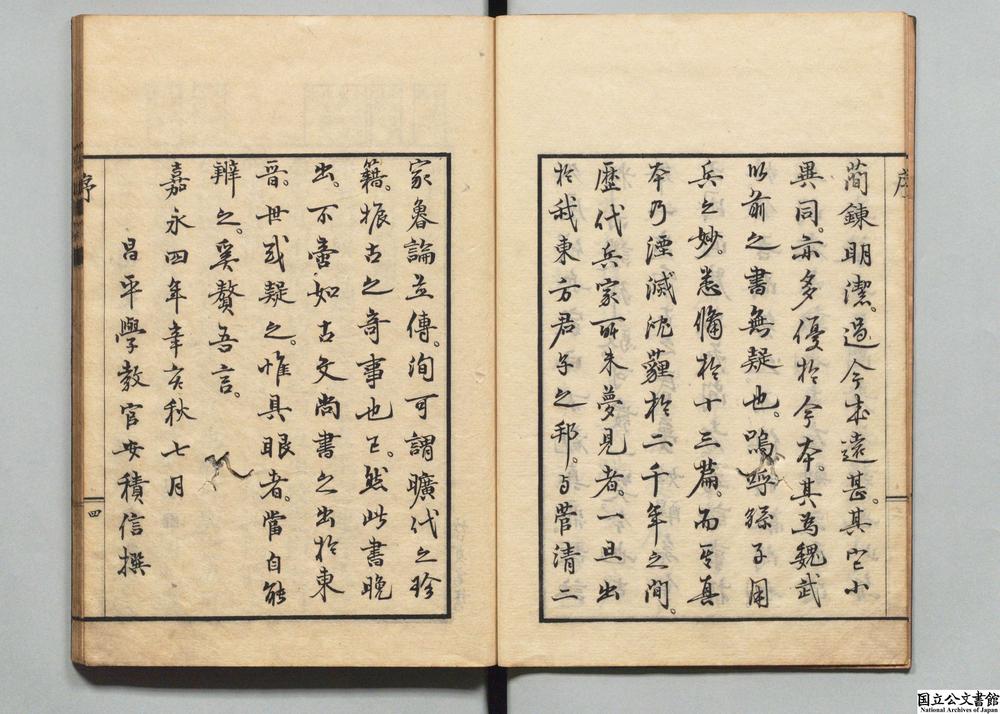 序
簡鍊明潔。過今本遠甚。其它小
異同。亦多優於今本。其為魏武
以前之書無疑也。嗚呼孫子用
兵之妙。悉備於十三篇。而其真
本乃湮滅沈薶於二千年之間。
歷代兵家所未夢見者。一旦出
於我東方君子之邦。与菅清二
家魯論並傳。洵可謂曠代之珍
籍。振古之奇事也已。然此書晚
出。不啻如古文尚書之出於東
晉。世或疑之。惟具眼者。當自能
辨之。奚贅吾言。
嘉永四年辛亥秋七月
昌平學教官安積信撰
序
四
国立公文書館
National Archives of Japan